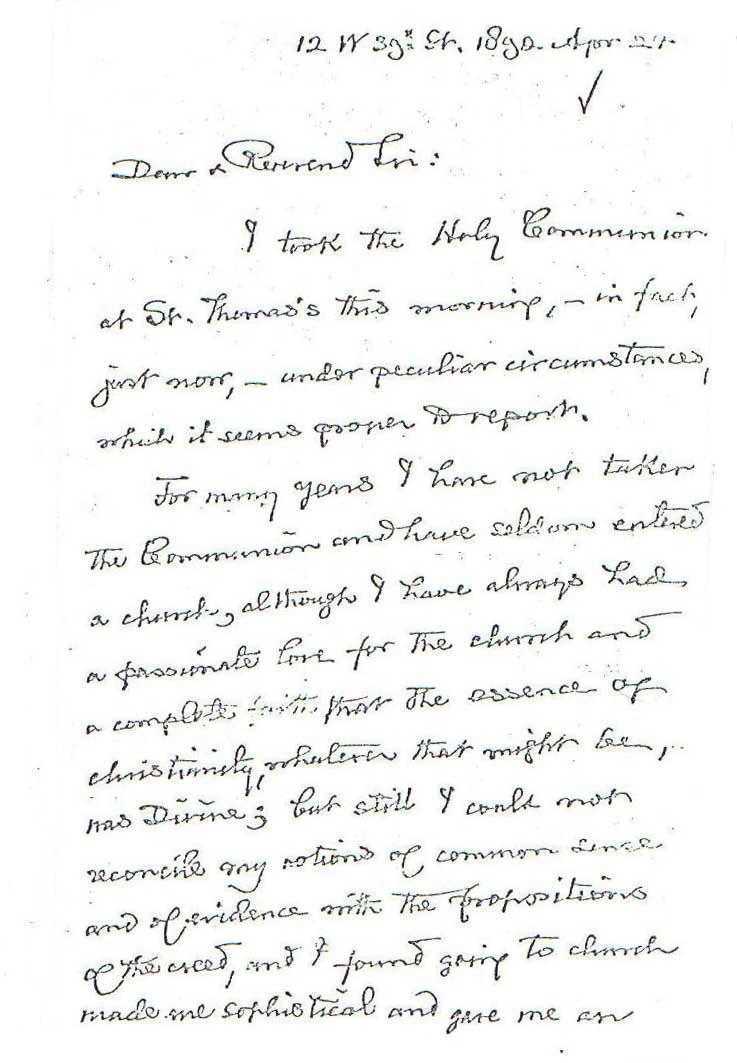 12 W 39th St. 1892 Apr 24
Dear & Reverend Sir:
I took the Holy Communion
at St. Thomas's this morning, – in fact,
just now, – under peculiar circumstances,
which it seems proper to report.
For many years I have not taken
the Communion and have seldom entered
a church, although I have always had
a passionate love for the church and
a complete faith that the essence of
christianity, whatever that might be,
was Divine; but still I could not
reconcile my notions of common sense
and of evidence with the propositions
of the creed, and I found going to church
made me sophistical and gave me an